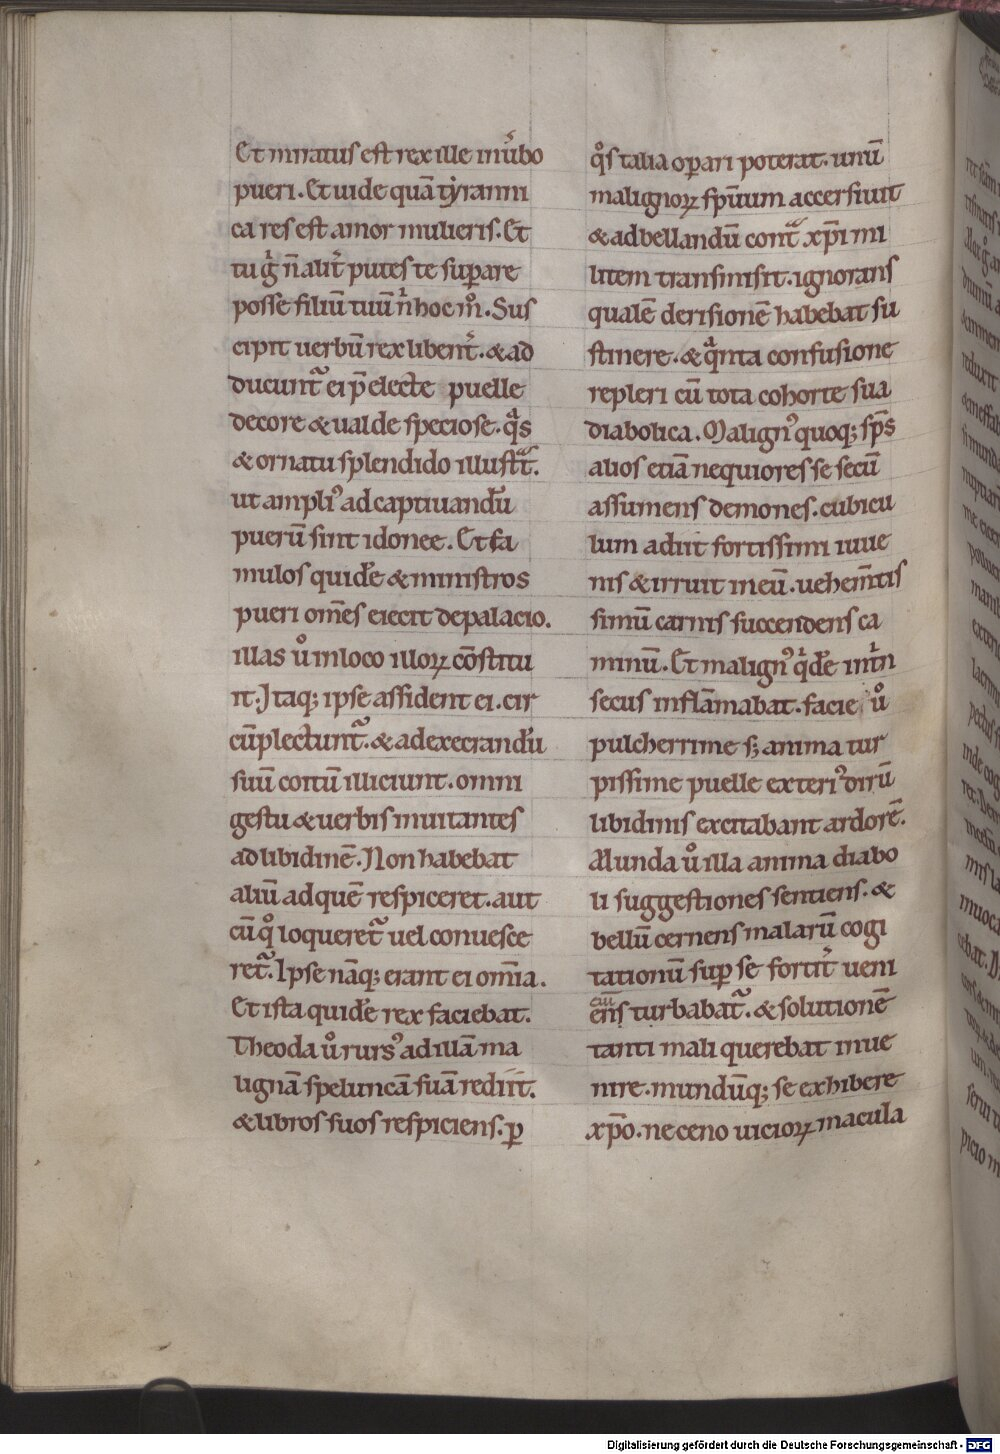 Et miratus est rex ille in ủbo
pueri. Et uide quā tẏranni
ca res est amor mulieris. Et
tu g̊ n̄ alit̉ putes te sup̱are
posse filiū tuū n̊ hoc m̊. Sus
cipit uerbū rex libent̉. & ad
ducunt᷑ ei p̄electe puelle
decore & ualde speciose. qͣs
& ornatu splendido illustͣt.
ut ampli᾽ ad captiuandū
puerū sint idonee. Et fa
mulos quidē & ministros
pueri om̄es eiecit de palacio.
illas ů in loco illoꝝ cōstitu
it. Itaq; ipse assident ei. cir
cūplectunt᷑. & ad execrandū
suū coitū illiciunt. omni
gestu & uerbis inuitantes
ad libidinē. Non habebat
aliū ad quē respiceret. aut
cū qͦ loqueret᷑ uel conuesce
ret᷑. Ipse nāq; erant ei om̄ia.
Et ista quidē rex faciebat.
Theoda ů rurs᾽ ad illā ma
lignā speluncā suā rediit.
& libros suos respiciens. ꝑ
qͦs talia oꝑari poterat. unū
malignoꝝ sp̄uum accersiuit
& ad bellandū contͣ xp̄i mi
litem transmisit. ignorans
qualē derisionē habebat su
stinere. & qͣnta confusione
repleri cū tota cohorte sua
diabolica. Malign᾽ quoq; sp̄s
alios etiā nequiores se secū
assumens demones. cubicu
lum adiit fortissimi iuue
nis & irruit in eū. uehem̄tis
simū carnis succendens ca
minū. Et malign᾽ qͥdē int̉n
secus inflāmabat. facie ů
pulcherrime s; anima tur
pissime puelle exteri᾽ dirū
libidinis excitabant ardorē.
Munda ů illa anima diabo
li suggestiones sentiens. &
bellū cernens malarū cogi
tationū suꝑ se fortit̉ ueni
ens turbabat᷑. & solutionē
tanti mali querebat inue
nire. mundūq; se exhibere
xp̄o. ne ceno uicioꝝ macula
Digitalisierung gefördert durch die Deutsche Forschungsgemeinschaft - DFG